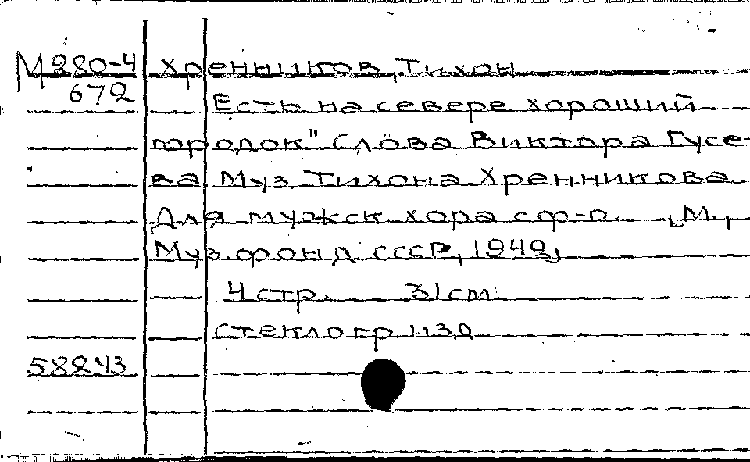 М280-4 Хренников, Тихон
672 Есть на севере хороший
городок" Слова Виктора Гусе-
ва Муз. Тихона Хренникова
Для мужск хора с ф-п. М.,
Муз. фонд СССР, 1949,
4 стр. 31 cm.
Стеклогр изд
58843